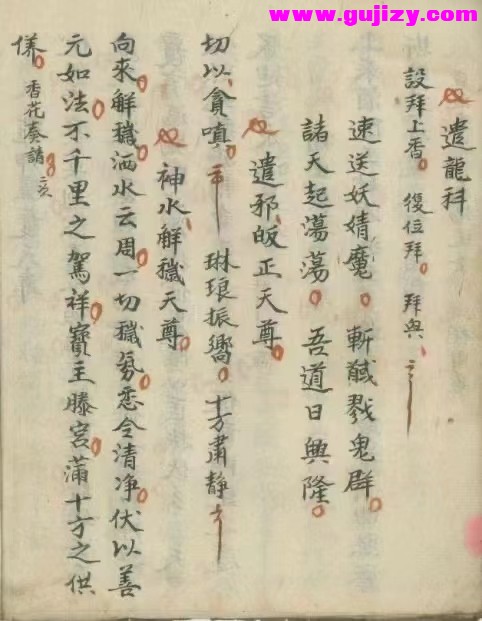 www.gujizy.com
遣龍科
設拜上香。復位拜。拜興
速送妖婧魔。斬馘戮鬼群。
諸天起蕩蕩。吾道日興隆。
遣邪皈正天尊
切以貪嗔 琳琅振嚮。十方肅静
神水解穢天尊
向來解穢洒水云周一切穢氛悉令清净伏以善
元如法不千里之駕祥寳主滕宮蒲十方之供
儀。香花奏請